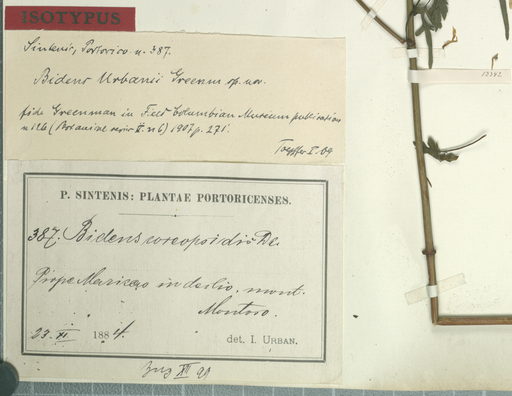 ISOTYPUS
Sintenis, Portorico n. 387.
Bidens Urbanii Greenm sp. nov.
fide Greenman in Field Columbian Museum publications
n 126 (Botanical series II. n 6) 1907 p. 271.
Toepffer X. 09
12342
P. SINTENIS: PLANTAE PORTORICENSES.
387. Bidens coreopsidis DC.
Prope Maricao in decliv. mont.
Montoso.
23. XI 1884. det. I. URBAN.
XII